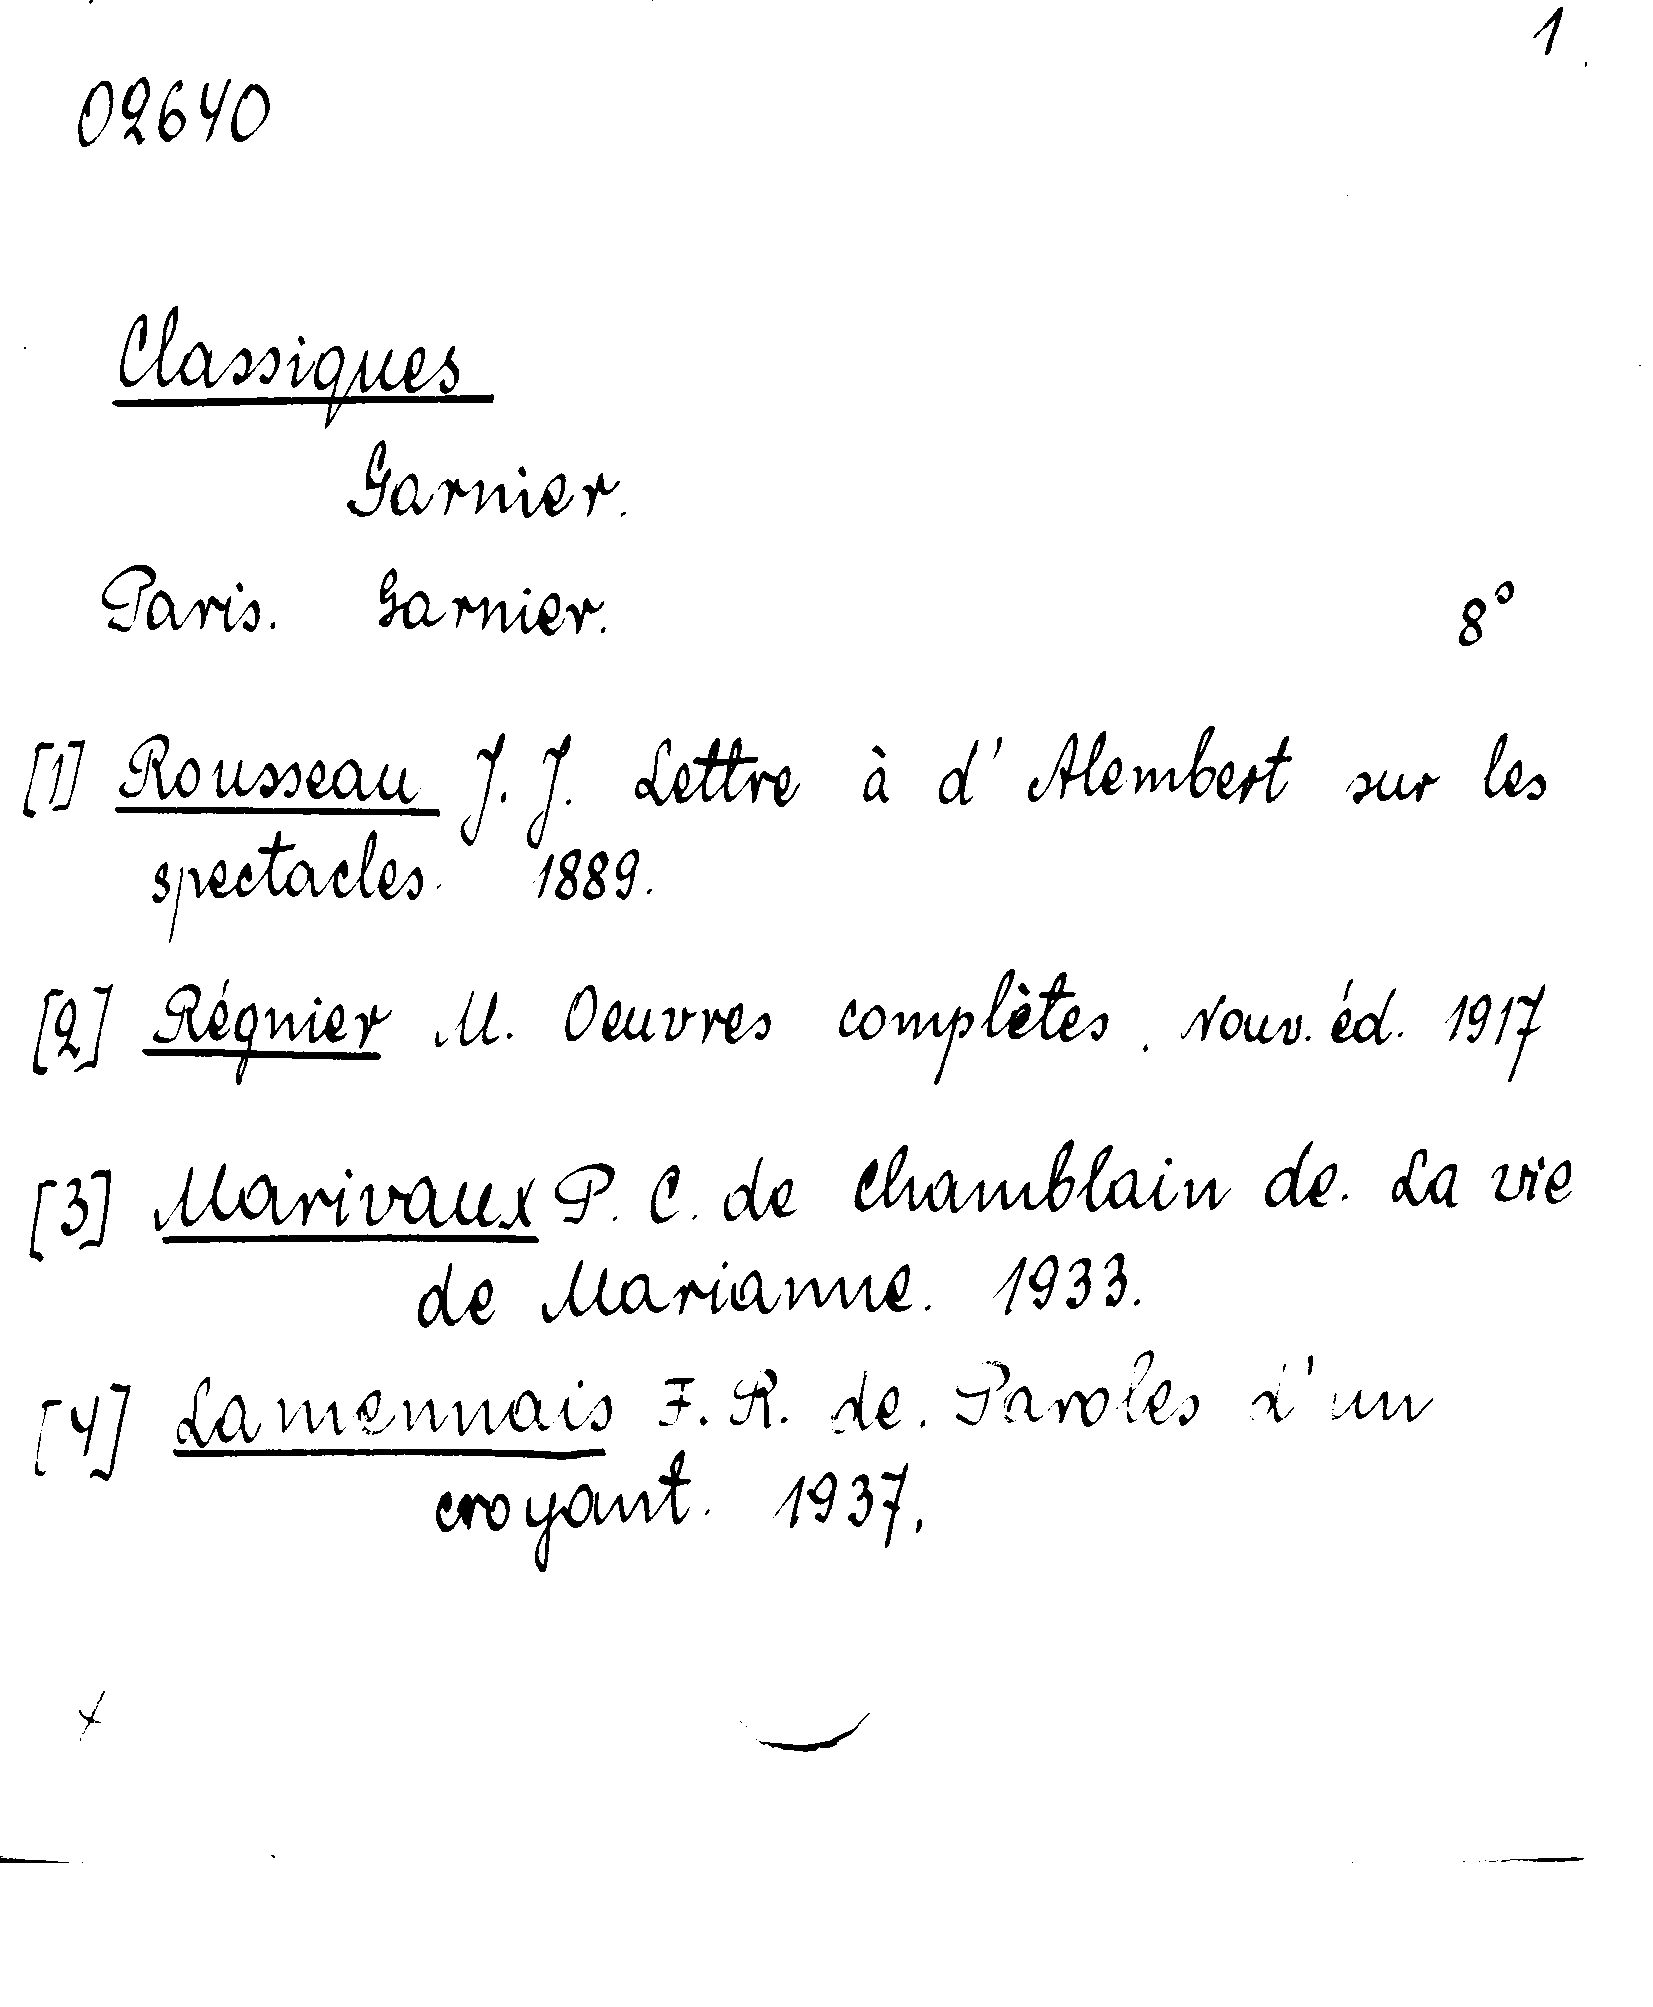 1
02640
Classiques
Garnier.
Paris. Garnier. 8°
[1] Rousseau J. J. Lettre à d'Alembert sur les
spectacles. 1889.
[2] Régnier M. Oeuvres complètes. Nouv. éd. 1917
[3] Marivaux P. C. de Chamblain de. La vie
de Marianne. 1933.
[4] Lamennais F. R. de. Paroles d'un
croyant. 1937.